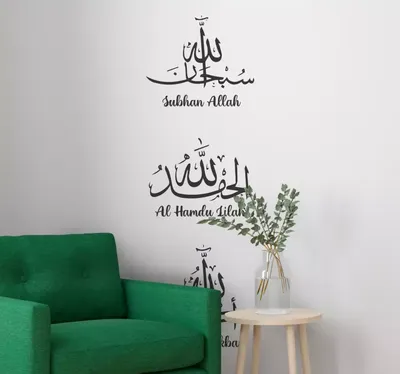 سبحان الله
Subhan Allah
الحمد لله
Al Hamdu Lilah
الله